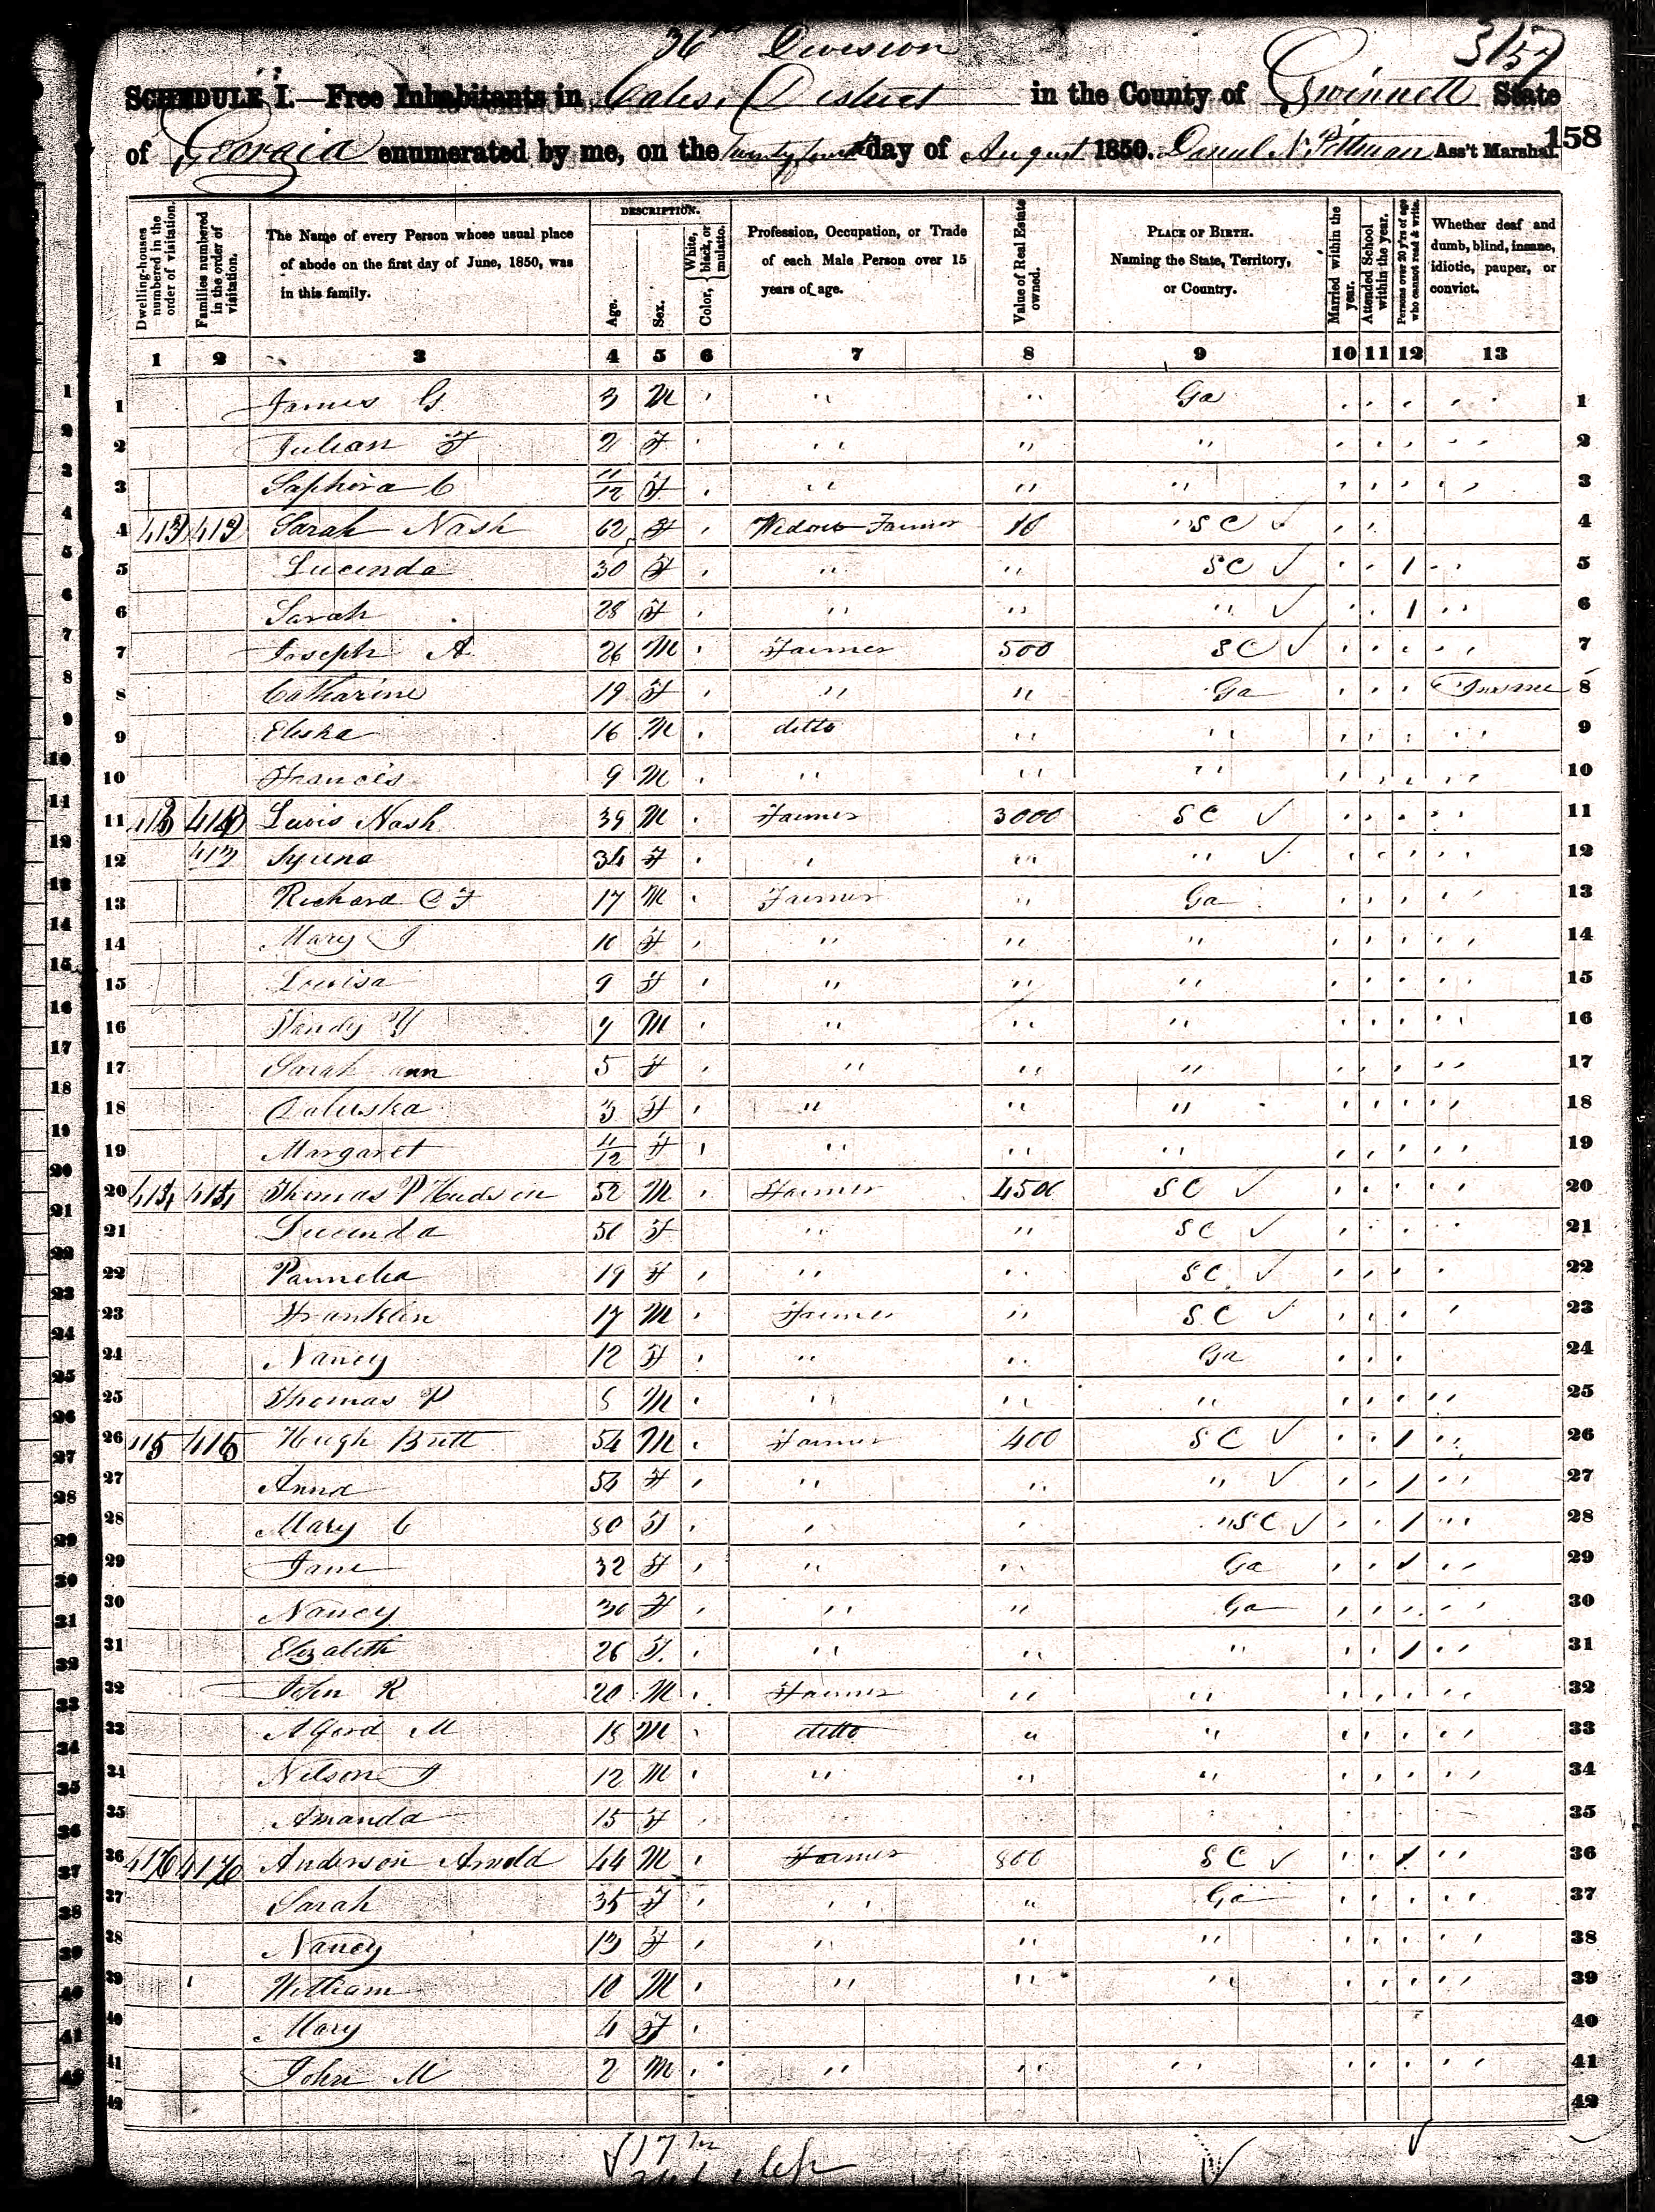 36th Division
3157
SCHEDULE I.—Free Inhabitants in Cates District in the County of Gwinnett State
of Georgia enumerated by me, on the Twenty fourth day of August 1850. Daniel N. Pittman Ass't Marshal.
158
Dwelling-houses numbered in the order of visitation.
Families numbered in the order of visitation.
The Name of every Person whose usual place of abode on the first day of June, 1850, was in this family.
DESCRIPTION.
Age.
Sex.
Color, White, black, or mulatto.
Profession, Occupation, or Trade of each Male Person over 15 years of age.
Value of Real Estate owned.
PLACE OF BIRTH. Naming the State, Territory, or Country.
Married within the year.
Attended School within the year.
Persons over 20 y'rs of age who cannot read & write.
Whether deaf and dumb, blind, insane, idiotic, pauper, or convict.
1 2 3 4 5 6 7 8 9 10 11 12 13
1 James G 3 M " " Ga 1
2 Julian F 2 F " " " 2
3 Saphira C 11/12 F " " " 3
4 Sarah Nash 62 F Widow Farmer " SC ✓ 4
5 Lucinda 30 F " " SC ✓ / 5
6 Sarah 28 F " " " ✓ / 6
7 Joseph A 26 M Farmer 500 SC ✓ 7
8 Catharine 19 F " " Ga Insane 8
9 Elisha 16 M ditto " " 9
10 Francis 9 M " " " 10
11 Lewis Nash 39 M Farmer 3000 SC ✓ 11
12 413 34 F " " " ✓ 12
13 Richard C F 17 M Farmer " Ga 13
14 Mary J 10 F " " " 14
15 Louisa 9 F " " " 15
16 7 M " " " 16
17 Sarah ann 5 F " " " 17
18 3 F " " " 18
19 Margaret 11/12 F " " " 19
20 414 414 Thomas P Hudson 52 M Farmer 4500 SC ✓ 20
21 Lucinda 50 F " " SC ✓ 21
22 Pamelia 19 F " " SC ✓ 22
23 Franklin 17 M Farmer " SC ✓ 23
24 Nancy 12 F " " Ga 24
25 Thomas P M " " " 25
26 415 415 Hugh Britt 54 M Farmer 400 SC ✓ / 26
27 Anna 54 F " " " ✓ / 27
28 Mary C 80 F " " "SC ✓ / 28
29 Jane 32 F " " Ga / 29
30 Nancy 30 F " " Ga 30
31 Elizabeth 26 F " " " / 31
32 John R 20 M Farmer " " 32
33 Alford M 18 M ditto " " 33
34 Nelson J 12 M " " " 34
35 Amanda 15 F 35
36 416 416 Anderson Arnold 44 M Farmer 800 SC ✓ / 36
37 Sarah 35 F " " Ga 37
38 Nancy 13 F " " " 38
39 William 10 M " " " 39
40 Mary 4 F 40
41 John M 2 M " " " 41
42 42
17 m